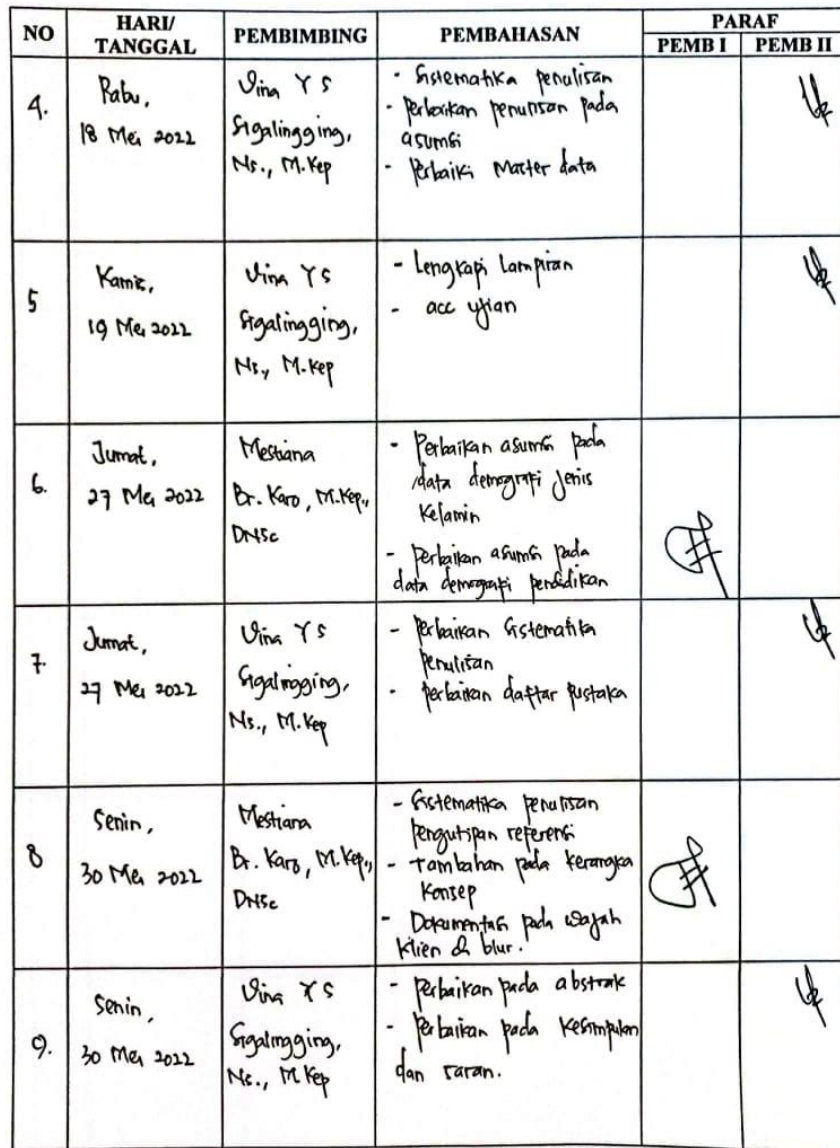 NO
HARI/
TANGGAL
PEMBIMBING
PEMBAHASAN
PARAF
PEMB I
PEMB II
4.
Rabu,
18 Mei 2022
Vina Y S
Sigalingging,
Ns., M.Kep
- Sistematika penulisan
- Perbaikan penulisan pada
asumsi
- Perbaiki Master data
5
Kamis,
19 Mei 2022
Vina Y S
Sigalingging,
Ns., M.Kep
- Lengkapi Lampiran
- acc ujian
6.
Jumat,
27 Mei 2022
Mestiana
Br. Karo, M.Kep.,
DNSc
- Perbaikan asumsi pada
data demografi jenis
Kelamin
- Perbaikan asumsi pada
data demografi pendidikan
7.
Jumat,
27 Mei 2022
Vina Y S
Sigalingging,
Ns., M.Kep
- Perbaikan Sistematika
penulisan
- perbaikan daftar pustaka
8
Senin,
30 Mei 2022
Mestiana
Br. Karo, M.Kep.,
DNSc
- Sistematika penulisan
pengutipan referensi
- Tambahan pada kerangka
Konsep
- Dokumentasi pada wajah
klien di blur.
9.
Senin,
30 Mei 2022
Vina Y S
Sigalingging,
Ns., M.Kep
- Perbaikan pada abstrak
- Perbaikan pada Kesimpulan
dan saran.